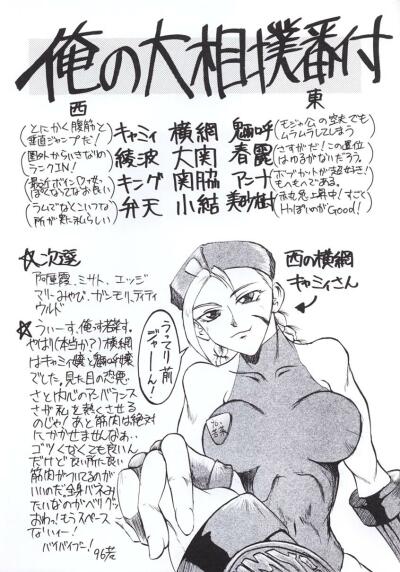 俺の大相撲番付
西
東
(とにかく腹筋と
垂直ジャンプだ!)
キャミィ 横綱 魎呼
(モジャ公の空夫でも
ムラムラしてしまう)
(圏外からいきなりの
ランクIN!)
綾波 大関 春麗
(さすがだ!この重位
はゆるがないだろう。)
キング 関脇 アンナ
(ボブカットが超好き!
もへもへである。)
弁天 小結 美紗樹
(ラムでなくこいつな
所が実に私らしい)
赤丸急上昇中!すごく
HっぽいのがGood!
☆次選
ミサト、エッジ
ウルド
西の横綱
キャミィさん
☆うぃーす、俺っす若村。
やはり(本当か?)横綱
はキャミィ嬢と魎呼嬢
でした。見た目の凶悪
さと内心のアンバランス
さが私を熱くさせる
のじゃ!あと筋肉は絶対
にかかせませんなぁ。
ゴツくなくても良いん
だけど良い所に良い
筋肉がついてるのが
いいのだ。全身バネみ
たいなのがベリグッ
おわっ!もうスペース
ないィー!
バイバイブー!
96老
うってり前
ジャーン!